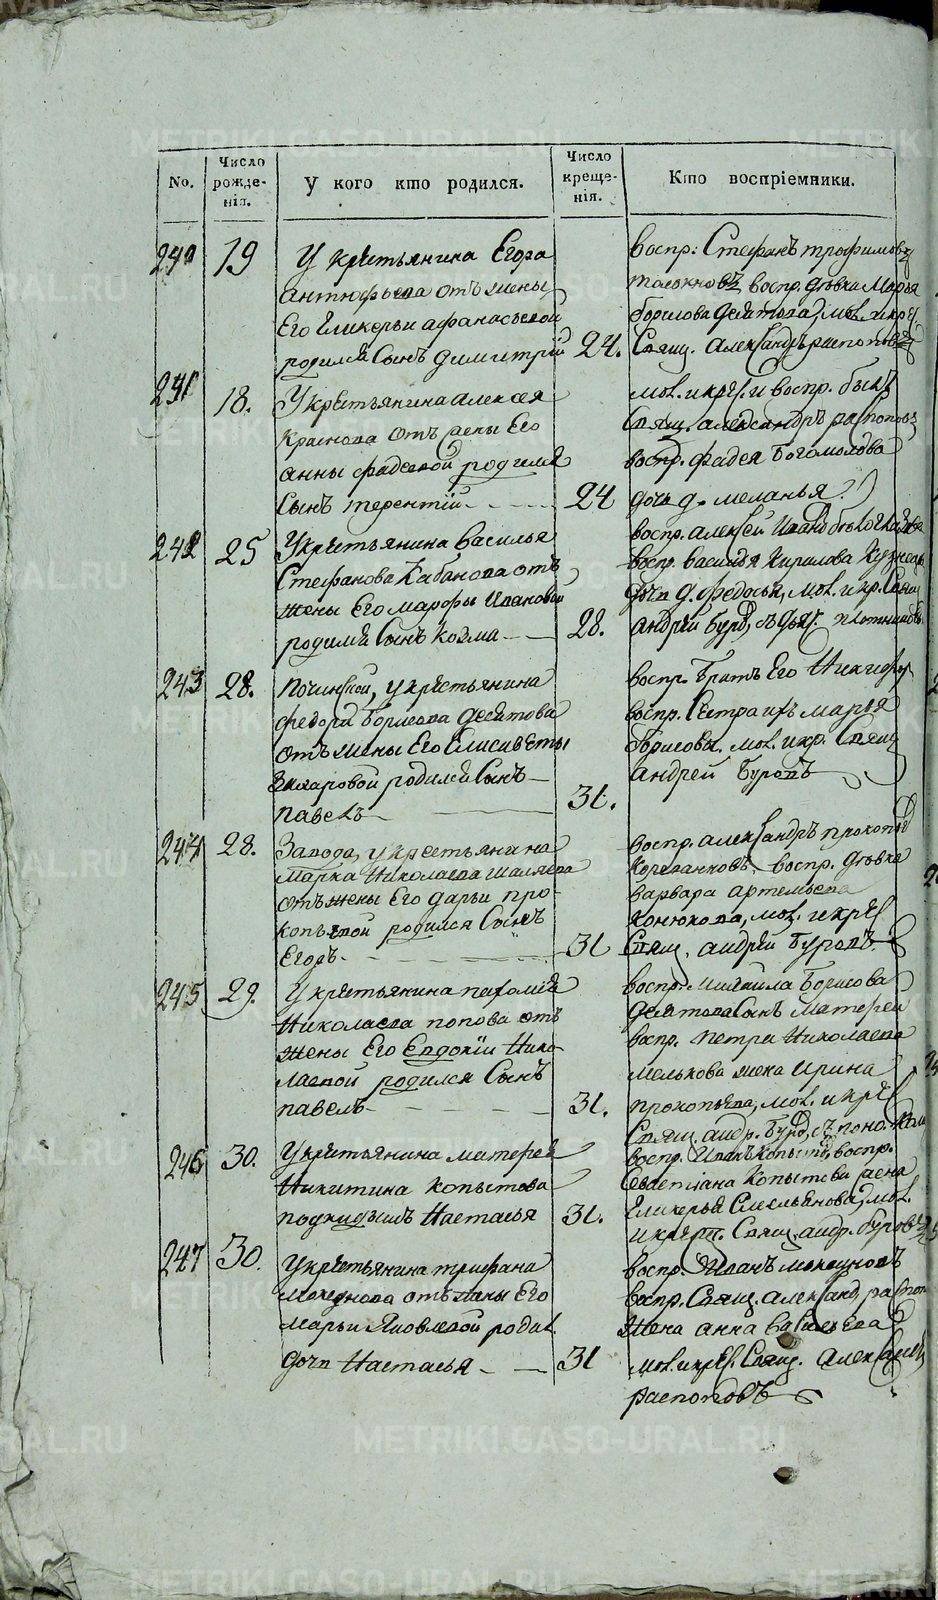 METRIKI.GASO-URAL.RU
No.
Число рожде-нія.
У кого кто родился.
Число креще-нія.
Кто воспріемники.
240 19
У крестьянина Егора
антюфьева отъ жены
Его Гликерьи афанасьевой
родился Сынъ Димитрій 24.
воспр: Стефанъ трофимовъ
воспр. дѣвка Марья
борисова десятова, мол. и крес.
Свящ. александръ распоповъ
241 18.
У крестьянина алексея
Краснова отъ жены Его
анны фадеевой родился
Сынъ терентій 24
мол. и крес. и воспр. былъ
Свящ. александръ распоповъ
воспр. фадея Богомолова
дочь д. меланья
242 25
У крестьянина василья
Стефанова Кабанова отъ
жены Его марфы Ивановой
родился Сынъ козма 28.
воспр. алексей Иванов
воспр. василья Кирилова
дочь д. федосья, мол. и кр. Свящ.
андрей Буровъ, съ дьяч. плотниковъ
243 28.
починской, у крестьянина
федора борисова десятова
отъ жены Его Елисаветы
родился Сынъ
павелъ 31.
воспр. братъ Его Никифоръ
воспр. Сестра ихъ марья
борисова. мол. и кр. Свящ.
андрей Буровъ
244 28.
Завода, у крестьянина
Марка Николаева шаляева
отъ жены Его дарьи про-
копьевой родился Сынъ
Егоръ 31
воспр. александръ прокопьев
воспр. дѣвка
варвара артемьева
конюхова, мол. и крес.
Свящ. андрей Буровъ
245 29.
У крестьянина пахомія
Николаева попова отъ
жены Его Евдокіи Нико-
лаевой родился Сынъ
павелъ 31.
воспр. михаила борисова
десятова Сынъ матерей
воспр. петра Николаева
мелькова жена Ирина
прокопьева, мол. и крес.
Свящ. андр. Буровъ, съ поно.
246 30.
У крестьянина матерея
Никитина копытова
подкидышъ Настасья 31.
воспр. Иванъ копытовъ, воспр.
копытова жена
Гликерья Емельянова, мол.
и крест. Свящ. андр. буровъ
247 30.
У крестьянина трифана
отъ жены Его
марьи Яковлевой родил.
дочь Настасья 31
воспр. Иванъ
воспр. Свящ. александ. распоп
жена анна васильева
мол. и крес. Свящ. александръ
распоповъ